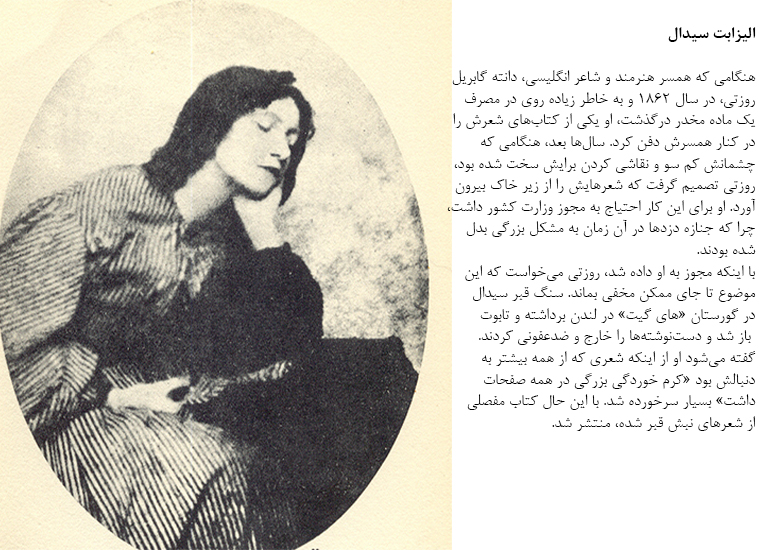 الیزابت سیدال
هنگامی که همسر هنرمند و شاعر انگلیسی، دانته گابریل
روزتی، در سال ۱۸۶۲ و به خاطر زیاده روی در مصرف
یک ماده مخدر درگذشت، او یکی از کتاب‌های شعرش را
در کنار همسرش دفن کرد. سال‌ها بعد، هنگامی که
چشمانش کم سو و نقاشی کردن برایش سخت شده بود،
روزتی تصمیم گرفت که شعرهایش را از زیر خاک بیرون
آورد. او برای این کار احتیاج به مجوز وزارت کشور داشت،
چرا که جنازه دزدها در آن زمان به مشکل بزرگی بدل
شده بودند.
با اینکه مجوز به او داده شد، روزتی می‌خواست که این
موضوع تا جای ممکن مخفی بماند. سنگ قبر سیدال
در گورستان «های گیت» در لندن برداشته و تابوت
باز شد و دست‌نوشته‌ها را خارج و ضدعفونی کردند.
گفته می‌شود او از اینکه شعری که از همه بیشتر به
دنبالش بود «کرم خوردگی بزرگی در همه صفحات
داشت» بسیار سرخورده شد. با این حال کتاب مفصلی
از شعرهای نبش قبر شده، منتشر شد.